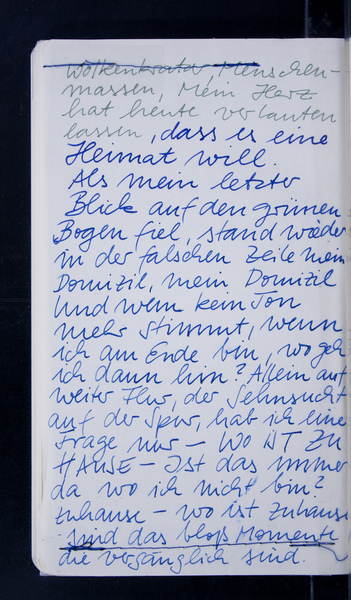 Wolkenkratzer, Menschen-
massen, Mein Herz
hat heute verlauten
lassen, dass es eine
Heimat will.
Als mein letzter
Blick auf den grünen
Bogen fiel, stand wieder
in der falschen Zeile mein
Domizil, mein Domizil
Und wenn kein Ton
mehr stimmt, wenn
ich am Ende bin, wo geh
ich dann hin? Allein auf
weiter Flur, der Sehnsucht
auf der Spur, hab ich eine
Frage nur – WO IST ZU
HAUSE – Ist das immer
da wo ich nicht bin?
Zuhause – wo ist Zuhause
sind das bloß Momente
die vergänglich sind.